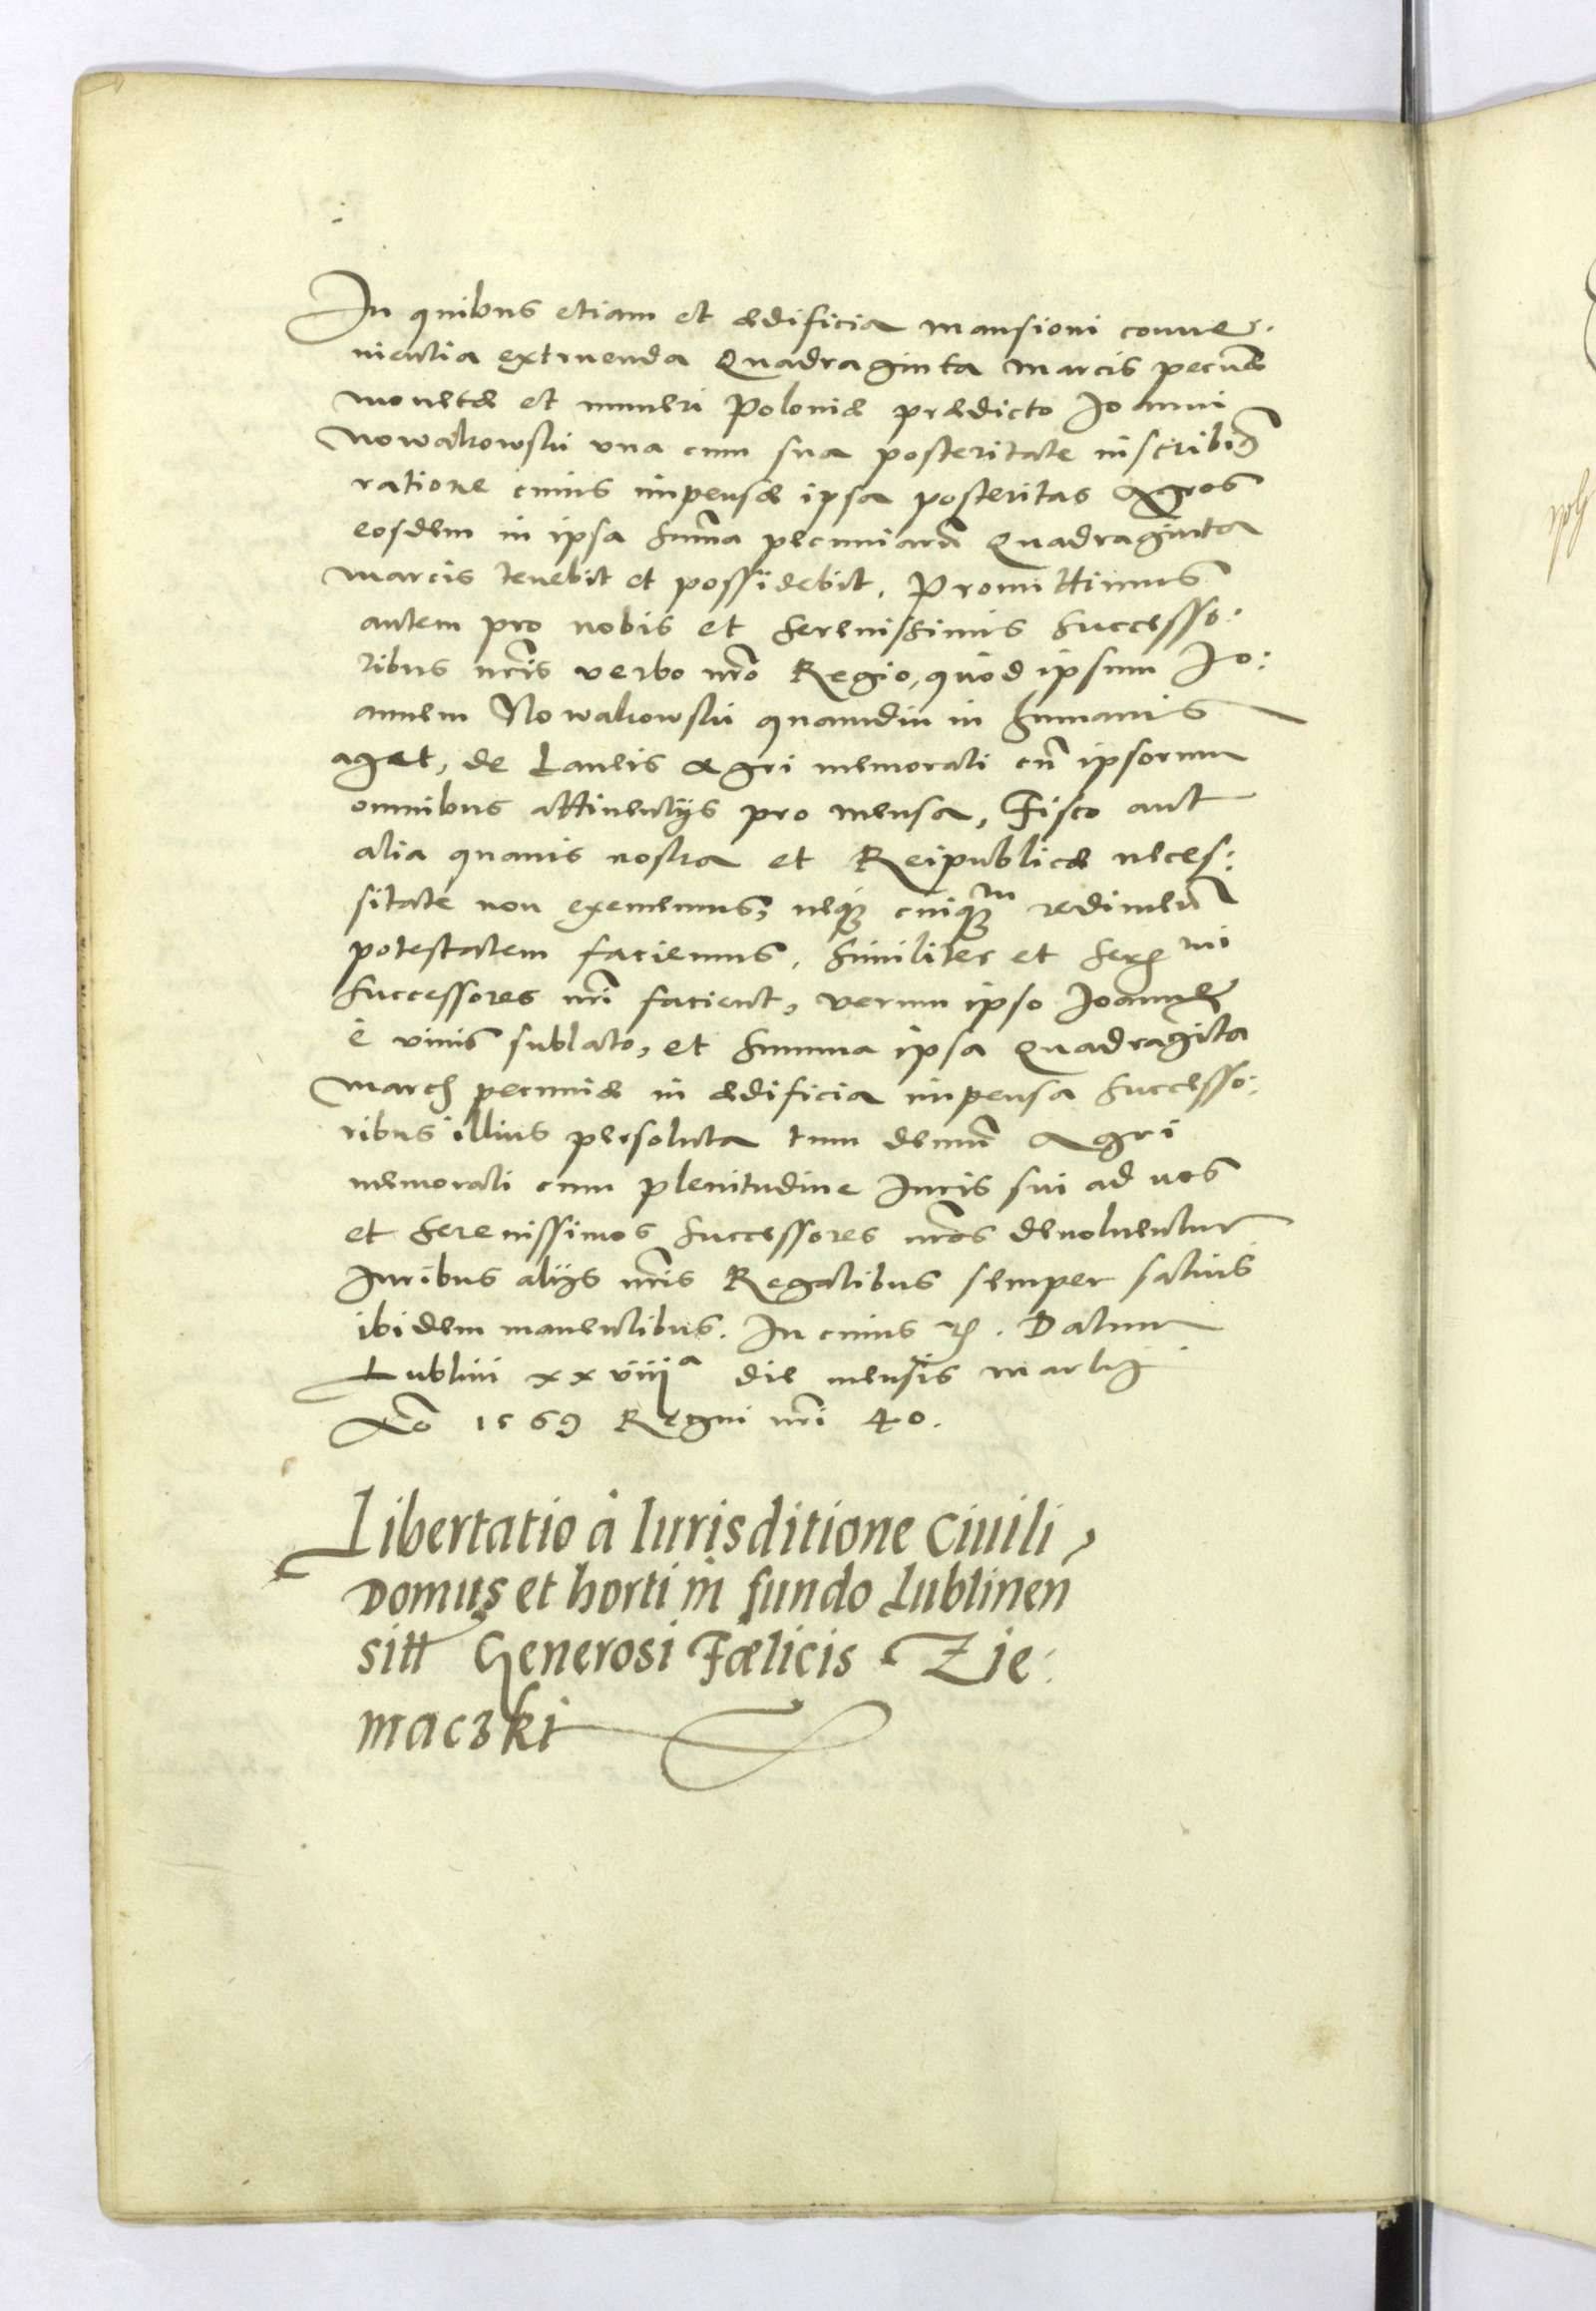 In quibus etiam et ædificia mansioni conue:
nientia extruenda Quadraginta marcis pecuniæ
monetæ et numeri Poloniæ prædicto Joanni
Nowakowski vna cum sua posteritate inscribim9
ratione cuius impensæ ipsa posteritas Agros
eosdem in ipsa sum̃a pecuniarũ Quadraginta
marcis tenebit et possidebit. Promittimus
autem pro nobis et Serenissimis Successo:
ribus nr̃is verbo nr̃o Regio, quod ipsum Jo:
annem Nowakowski quamdiu in humanis
aget, de Laneis Agri memorati cũ ipsorum
omnibus attinentijs pro mensa, Fisco aut
alia quauis nostra et Reipublicæ neces:
sitate non eximemus, neq3 cuiq3m redimendi
potestatem faciemus. Similiter et Sermi
Successores nr̃i facient, verum ipso Joanne
è viuis sublato, et Summa ipsa Quadragīta
march pecuniæ in ædificia impensa Successo:
ribus illius persoluta tum demũ Agri
memorati cum plenitudine Iuris sui ad nos
et Serenissimos Successores nr̃os deuoluentur
Iuribus alijs nr̃is Regalibus semper saluis
ibidem manentibus. In cuius r̃. Datum
Lublini xxviiija die mensis martij
Aõ 1569 Regni nr̃i 40.
Libertatio à Iurisditione Ciuili,
Domus et horti in fundo Lublinen
sitt Generosi Fœlicis Zie:
maczki